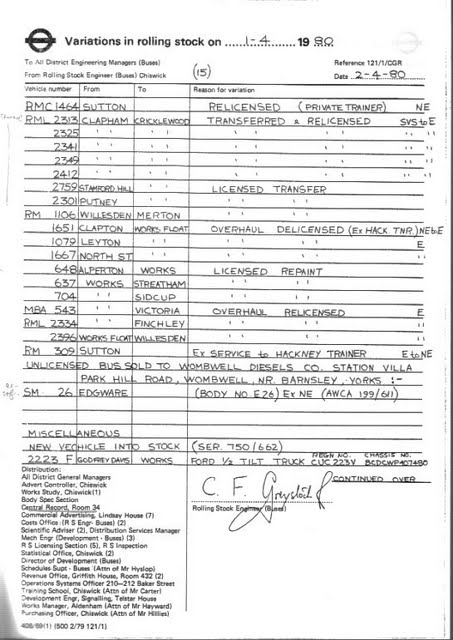 Variations in rolling stock on 1-4 1980
To All District Engineering Managers (Buses) Reference 121/1/CGR
From Rolling Stock Engineer (Buses) Chiswick (15) Date 2-4-80
Vehicle number From To Reason for variation
RMC 1464 SUTTON RELICENSED (PRIVATE TRAINER) NE
RML 2313 CLAPHAM CRICKLEWOOD TRANSFERRED & RELICENSED SVS to E
2325 " " " " " " " "
2341 " " " " " " " "
2349 " " " " " " " "
2412 " " " " " " " "
2759 STAMFORD HILL " " LICENSED TRANSFER
2301 PUTNEY " " " "
RM 1106 WILLESDEN MERTON " "
1651 CLAPTON WORKS FLOAT OVERHAUL DELICENSED (Ex HACK. TNR.) NE to E
1079 LEYTON " " " " E
1667 NORTH ST " " " " "
648 ALPERTON WORKS LICENSED REPAINT
637 WORKS STREATHAM " "
704 " " SIDCUP " "
MBA 543 " " VICTORIA OVERHAUL RELICENSED E
RML 2334 " " FINCHLEY " " "
2396 WORKS FLOAT WILLESDEN " " "
RM 309 SUTTON Ex SERVICE to HACKNEY TRAINER E to NE
UNLICENSED BUS SOLD TO WOMBWELL DIESELS CO. STATION VILLA
PARK HILL ROAD, WOMBWELL, NR. BARNSLEY, YORKS :-
SM 26 EDGWARE (BODY NO E26) Ex NE (AWCA 199/611)
MISCELLANEOUS
NEW VECHICLE INTO STOCK (SER. 750/662)
REGN NO. CHASSIS NO.
2223 F GODFREY DAVIS WORKS FORD ½ TILT TRUCK CUC 223V BCDCWP407480
CONTINUED OVER
Distribution:
All District General Managers
Advert Controller, Chiswick
Works Study, Chiswick (1)
Body Spec Section
Central Record, Room 34
Commercial Advertising, Lindsay House (7)
Costs Office (R S Engr- Buses) (2)
Rolling Stock Engineer (Buses)
Scientific Adviser (2), Distribution Services Manager
Mech Engr (Development - Buses) (3)
R S Licensing Section (5), R S Inspection
Statistical Office, Chiswick (2)
Director of Development (Buses)
Schedules Supt - Buses (Attn of Mr Hyslop)
Revenue Office, Griffith House, Room 432 (2)
Operations Systems Officer 210—212 Baker Street
Training School, Chiswick (Attn of Mr Carter)
Development Engr, Signalling, Telstar House
Works Manager, Aldenham (Attn of Mr Hayward)
Purchasing Officer, Chiswick (Attn of Mr Hillies)
408/69(1) (500 2/79 121/1)